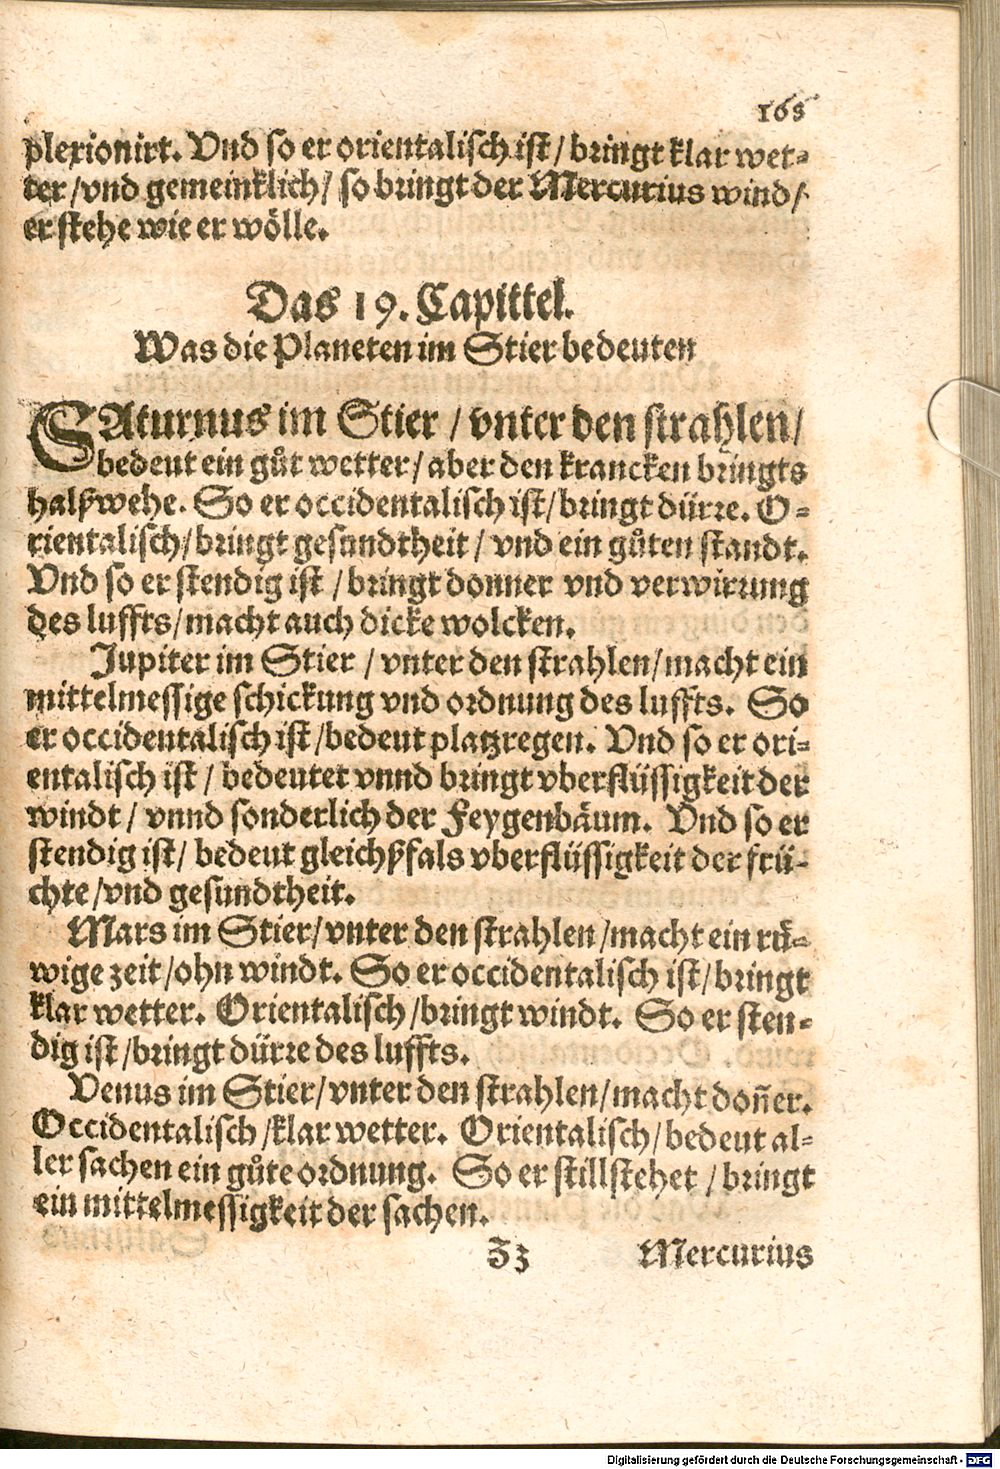 165
plexionirt. Vnd so er orientalisch ist / bringt klar wet-
ter / vnd gemeinklich / so bringt der Mercurius wind /
er stehe wie er wölle.
Das 19. Capittel.
Was die Planeten im Stier bedeuten
SAturnus im Stier / vnter den strahlen /
bedeut ein gůt wetter / aber den krancken bringts
halßwehe. So er occidentalisch ist / bringt dürre. O-
rientalisch / bringt gesundtheit / vnd ein gůten standt.
Vnd so er stendig ist / bringt donner vnd verwirrung
des luffts / macht auch dicke wolcken.
Jupiter im Stier / vnter den strahlen / macht ein
mittelmessige schickung vnd ordnung des luffts. So
er occidentalisch ist / bedeut platzregen. Vnd so er ori-
entalisch ist / bedeutet vnnd bringt vberflüssigkeit der
windt / vnnd sonderlich der Feygenbäum. Vnd so er
stendig ist / bedeut gleichßfals vberflüssigkeit der frü-
chte / vnd gesundtheit.
Mars im Stier / vnter den strahlen / macht ein rů-
wige zeit / ohn windt. So er occidentalisch ist / bringt
klar wetter. Orientalisch / bringt windt. So er sten-
dig ist / bringt dürre des luffts.
Venus im Stier / vnter den strahlen / macht doñer.
Occidentalisch / klar wetter. Orientalisch / bedeut al-
ler sachen ein gůte ordnung. So er stillstehet / bringt
ein mittelmessigkeit der sachen.
Zz Mercurius
Digitalisierung gefördert durch die Deutsche Forschungsgemeinschaft - DFG